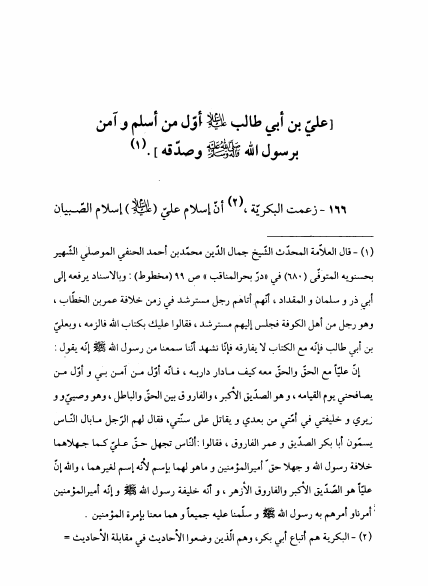 [عليّ بن أبي طالب عليه السلام أوّل من أسلم و آمن
برسول الله ﷺ وصدّقه ] . (١)
١٦٦ - زعمت البكريّة ، (٢) أنّ إسلام عليّ (عليه السلام) إسلام الصّبيان
(١) - قال العلّامة المحدث الشّيخ جمال الدّين محمدبن أحمد الحنفي الموصلي الشّهير
بحسنويه المتوفّى (٦٨٠) في «درّ بحرالمناقب » ص ٩٩ (مخطوط) : وبالاسناد يرفعه إلى
أبي ذر و سلمان و المقداد ، أنّهم أتاهم رجل مسترشد في زمن خلافة عمربن الخطّاب ،
وهو رجل من أهل الكوفة فجلس إليهم مسترشد ، فقالوا عليك بكتاب الله فالزمه ، وبعليّ
بن أبي طالب فإنّه مع الكتاب لا يفارقه فإنّا نشهد أنّنا سمعنا من رسول الله ﷺ إنّه يقول :
إنّ عليّاً مع الحقّ والحقّ معه كيف مـادار داربـه ، فـانّه أوّل مـن آمـن بـي و أوّل مـن
يصافحني يوم القيامه ، و هو الصدّيق الأكبر ، والفاروق بين الحقّ والباطل ، وهو وصيّي و
زيري و خليفتي في أمّتي من بعدي و يقاتل على سنّتي، فقال لهم الرّجل مـابال النّـاس
يسمّون أبا بكر الصدّيق و عمر الفاروق ، فقالوا : ألنّاس تجهل حـقّ عـليّ كـما جـهلاهما
خلافة رسول الله و جهلا حقّ أميرالمؤمنين و ماهو لهما بإسم لأنّه إسم لغيرهما ، والله إنّ
عليّاً هو الصّدّيق الأكبر والفاروق الأزهر ، و أنّه خليفة رسول الله ﷺ و إنّه أميرالمؤمنين
أمرناو أمرهم به رسول الله ﷺ و سلّمنا عليه جميعاً و هما معنا بإمرة المؤمنين .
(٢) - البكرية هم أتباع أبي بكر، وهم الّذين وضعوا الأحاديث في مقابلة الأحاديث =